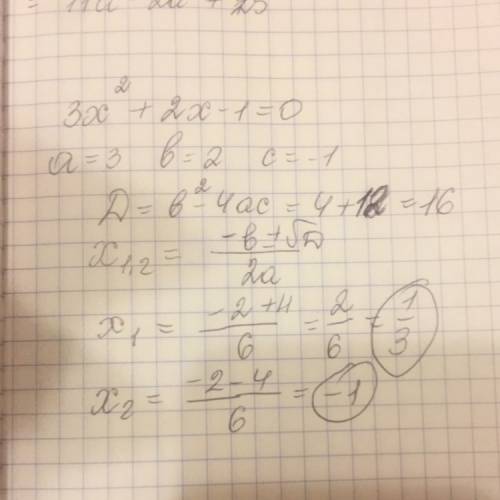 3x² + 2x - 1 = 0
a = 3 b = 2 c = -1
D = b² - 4ac = 4 + 12 = 16
x₁,₂ = (-b ± √D) / 2a
x₁ = (-2 + 4) / 6 = 2/6 = 1/3
x₂ = (-2 - 4) / 6 = -1